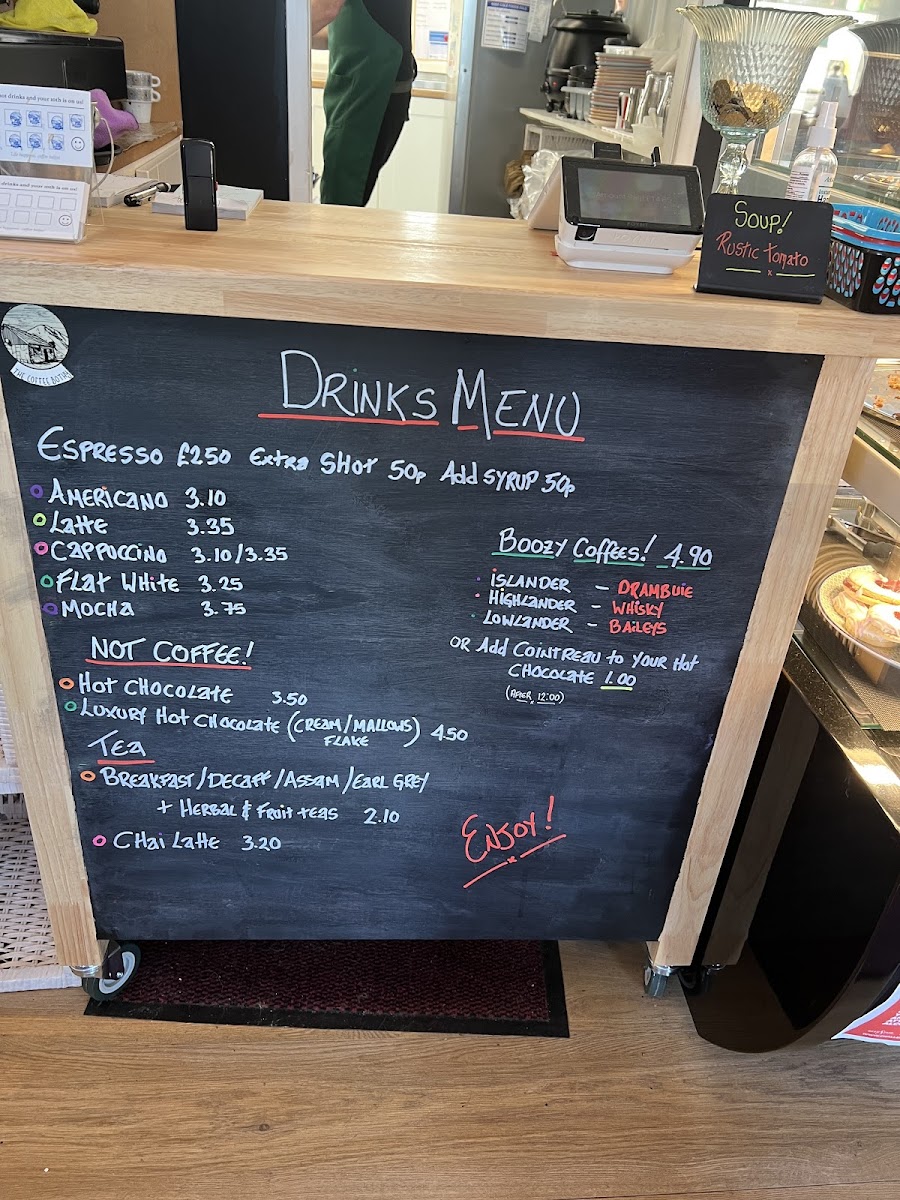 drinks and your 10th is on us!
SOUP!
Rustic tomato
THE COFFEE BOTHY
DRINKS MENU
ESPRESSO £250 Extra SHOT 50p Add SYRUP 50p
AMERICANO 3.10
Latte 3.35
CAPPUCCINO 3.10/3.35
FLAT WHITE 3.25
MOCHA 3.75
NOT COFFEE!
HOT CHOCOLATE 3.50
LUXURY HOT CHOCOLATE (CREAM/MALLOWS/FLAKE) 4.50
TEA
BREAKFAST/DECAFF/ASSAM/EARL GREY
+ HERBAL & FRUIT TEAS 2.10
CHAI LATTE 3.20
BOOZY COFFEES! 4.90
ISLANDER - DRAMBUIE
HIGHLANDER - WHISKY
LOWLANDER - BAILEYS
OR Add COINTREAU to YOUR HOT
CHOCOLATE 1.00
(AFTER 12:00)
ENJOY!